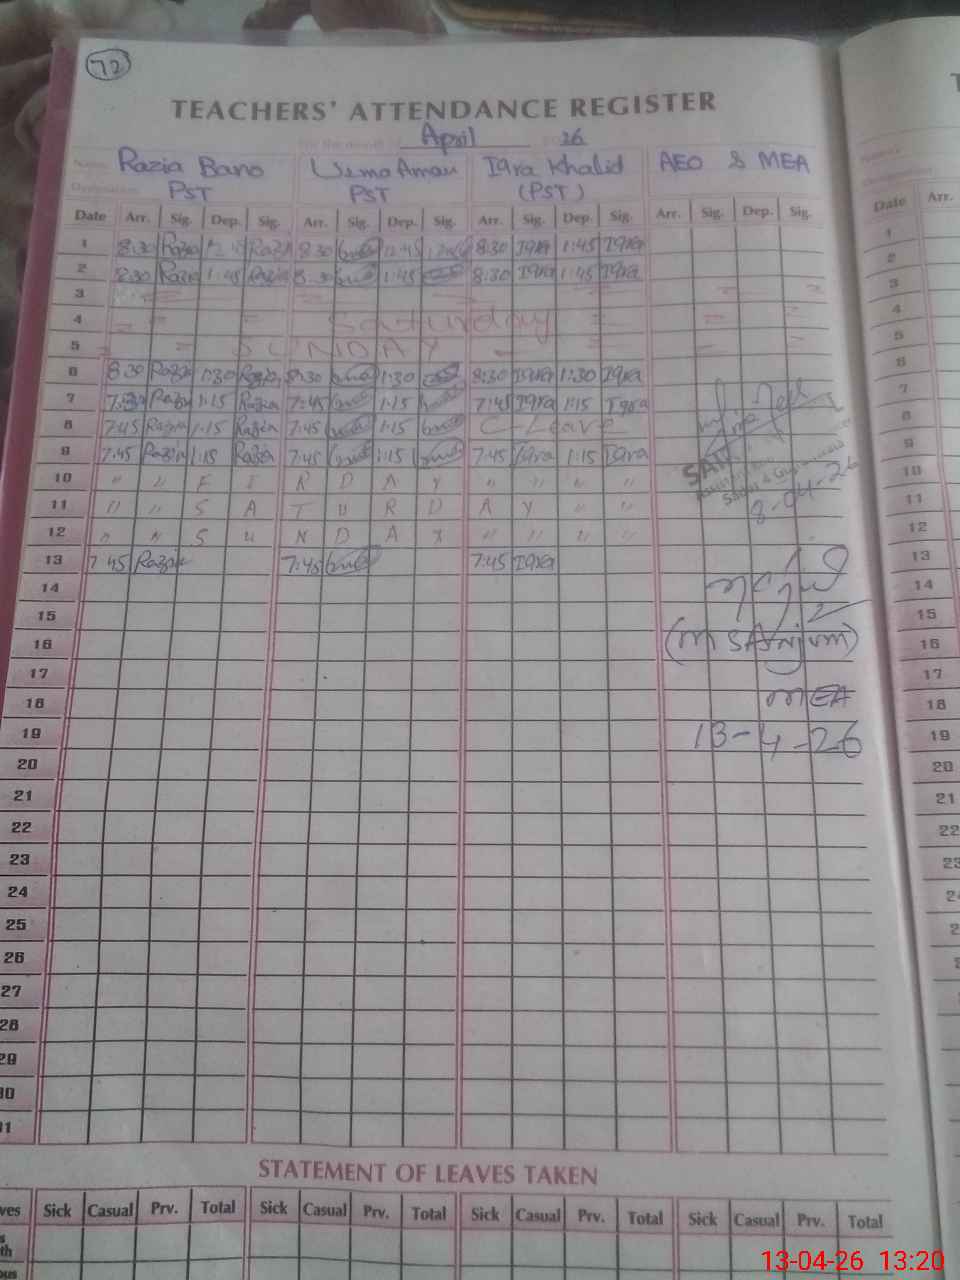 72
TEACHERS' ATTENDANCE REGISTER
April 26
Razia Bano Usma Aman Iqra Khalid AEO & MEA
PST PST (PST)
Date Arr. Sig. Dep. Sig. Arr. Sig. Dep. Sig. Arr. Sig. Dep. Sig. Arr. Sig. Dep. Sig.
1 8:30 Razia Razia 8:30 12:45 8:30 Iqra 1:45 Iqra
2 8:30 Razia 1:45 Razia 8:30 1:45 8:30 Iqra 1:45 Iqra
3
4 Saturday
5 SUNDAY
6 8:30 Razia 1:30 Razia 8:30 1:30 8:30 Iqra 1:30 Iqra
7 Razia 1:15 Razia 7:45 1:15 7:45 Iqra 1:15 Iqra
8 7:45 Razia 1:15 Razia 7:45 1:15 C-Leave
9 7:45 Razia 1:15 Razia 7:45 1:15 7:45 Iqra 1:15 Iqra
10 " " F I R D A Y " " " "
11 " " S A T U R D A Y " "
8-04-26
12 " " S U N D A Y " " " "
13 7:45 Razia 7:45 7:45 Iqra
14
15
16 (M S Anjum)
17
18 MEA
19 13-4-26
20
21
22
23
24
25
26
27
28
29
30
31
STATEMENT OF LEAVES TAKEN
Sick Casual Prv. Total Sick Casual Prv. Total Sick Casual Prv. Total Sick Casual Prv. Total
Date Arr.
1
2
3
4
5
6
7
8
9
10
11
12
13
14
15
16
17
18
19
20
21
22
13-04-26 13:20